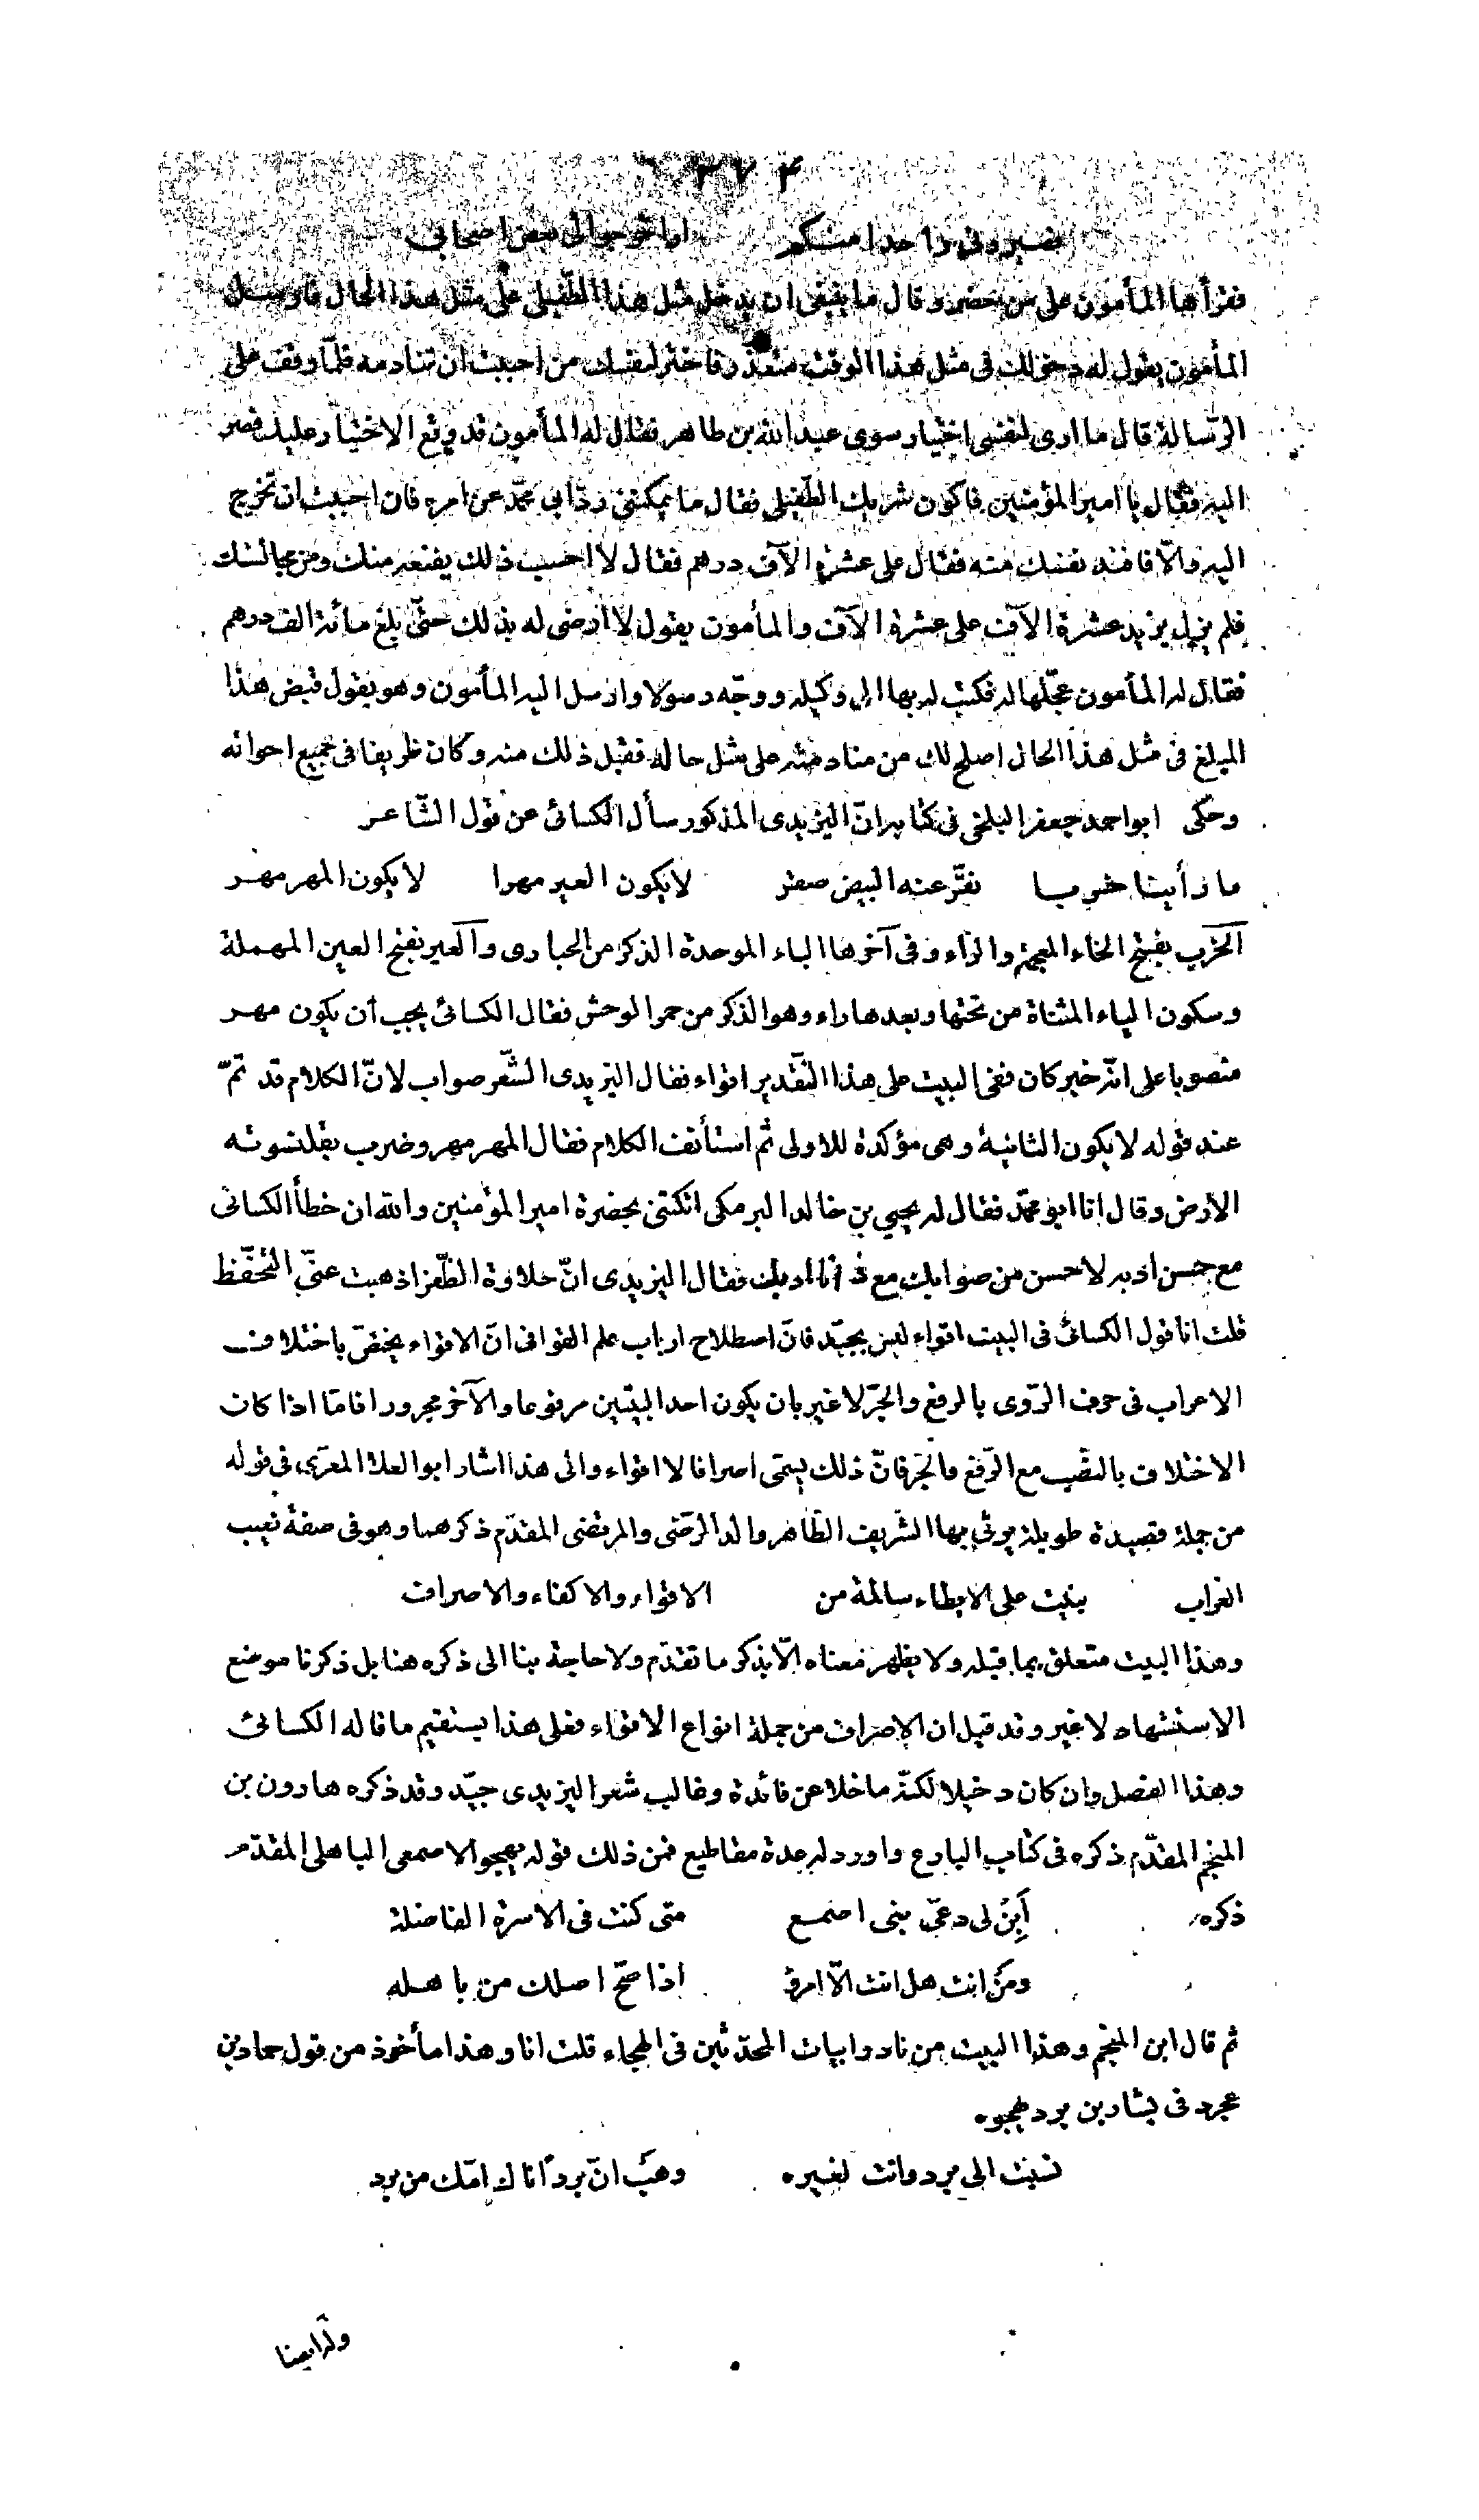 ٣٧٤
فصيروني واحدا منكم اوا خرجوا لي بعض اصحابي
فقرأها المأمون على من حضر وقال ما ينبغى ان يدخل مثل هذا الطفيلى على مثل هذا الحال فارسل
المأمون يقول له دخولك فى مثل هذا الوقت متعذر فاختر لنفسك من احببت ان تنادمه فلمّا وقف على
الرّسالة قال ما ارى لنفسى اختيار سوى عبد الله بن طاهر فقال له المأمون قد وقع الاختيار عليك فصر
اليه فقال يا امير المؤمنين فاكون شريك الطفيلى فقال ما يمكننى ردّ ابى محمّد عن امره فان احببت ان تخرج
اليه والّا فافتد نفسك منه فقال على عشرة الآف درهم فقال لا احسب ذلك يقنعه منك ومن مجالستك
فلم يزل يزيد عشرة الآف على عشرة الآف والمأمون يقول لا ارضى له بذلك حتّى بلغ مائة الف درهم
فقال له المأمون عجّلها له فكتب له بها الى وكيله ووجّه رسولا وارسل اليه المأمون وهو يقول قبض هذا
المبلغ فى مثل هذا الحال اصلح لك من منادمته على مثل حاله فقبل ذلك منه وكان ظريفا فى جميع احواله
وحكى ابو احمد جعفر البلخى فى كتابه انّ اليزيدى المذكور سأل الكسائى عن قول الشّاعر
ما رأينا خربا نقّر عنه البيض صقر لا يكون العير مهرا لا يكون المهر مهر
الخرب بفتح الخاء المعجمة والراء وفى آخرها الباء الموحدة الذكر من الحبارى والعير بفتح العين المهملة
وسكون الياء المثناة من تحتها وبعدها راء وهو الذكر من حمر الوحش فقال الكسائى يجب أن يكون مهر
منصوبا على انّه خبر كان ففى البيت على هذا التقدير اقواء فقال اليزيدى الشّعر صواب لانّ الكلام قد تمّ
عند قوله لا يكون الثانية وهى مؤكدة للاولى ثم استأنف الكلام فقال المهر مهر وضرب بقلنسوته
الارض وقال انا ابو محمّد فقال له يحيى بن خالد البرمكى اتكتنى بحضرة امير المؤمنين والله ان خطأ الكسائى
مع حسن ادبه لاحسن من صوابك مع أدبك فقال اليزيدى انّ حلاوة الظّفر اذهبت عنّى التحفّظ
قلت انا قول الكسائى فى البيت اقواء ليس بجيّد فانّ اصطلاح ارباب علم القوافى انّ الاقواء يختصّ باختلاف
الاعراب فى حرف الرّوى بالرفع والجرّ لا غير بان يكون احد البيتين مرفوعا والآخر مجرورا فامّا اذا كان
الاختلاف بالنصب مع الرّفع والجرّ فانّ ذلك يسمّى اصرافا لا اقواء والى هذا اشار ابو العلا المعرّى فى قوله
من جملة قصيدة طويلة يرثى بها الشّريف الطّاهر والد الرضى والمرتضى المقدّم ذكرهما وهو فى صفة نعيب
الغراب بنيت على الايطاء سالمة من الاقواء والاكفاء والاصراف
وهذا البيت متعلق بما قبله ولا يظهر معناه الّا بذكر ما تقدّم ولا حاجة بنا الى ذكره هنا بل ذكرنا موضع
الاستشهاد لا غير وقد قيل ان الاصراف من جملة انواع الاقواء فعلى هذا يستقيم ما قاله الكسائى
وهذا الفصل وان كان دخيلا لكنّه ما خلا عن فائدة وغالب شعر اليزيدى جيّد وقد ذكره هارون بن
المنجم المقدّم ذكره فى كتاب البارع واورد له عدة مقاطيع فمن ذلك قوله يهجو الاصمعى الباهلى المقدّم
ذكره أَبِنْ لى دعىّ بنى اصمع متى كنت فى الاسرة الفاضلة
ومن انت هل انت الّا امرؤ اذا صحّ اصلك من باهله
ثم قال ابن المنجم وهذا البيت من نادر ابيات المحدّثين فى الهجاء قلت انا وهذا مأخوذ من قول حماد بن
عجرد فى بشار بن برد يهجوه
نسبت الى برد وانت لغيره وهَبْ انّ بردًا ناك امّك من برد
ولرايضا